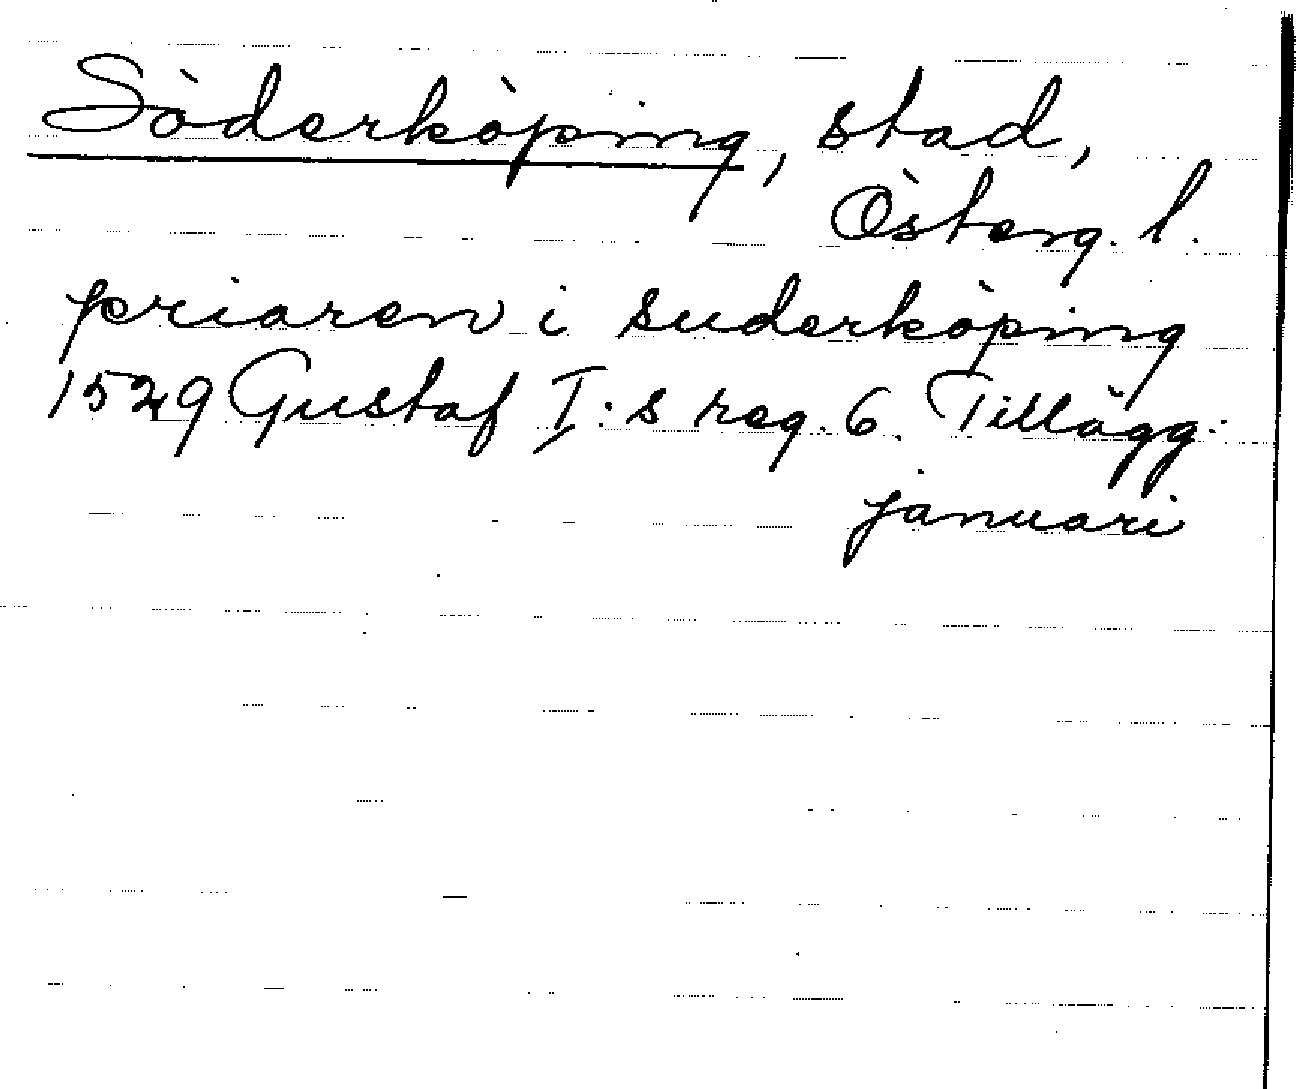 Söderköping, stad,
Österg. l.
priaren i suderköping
1529 Gustaf I:s reg. 6. Tillägg.
januari